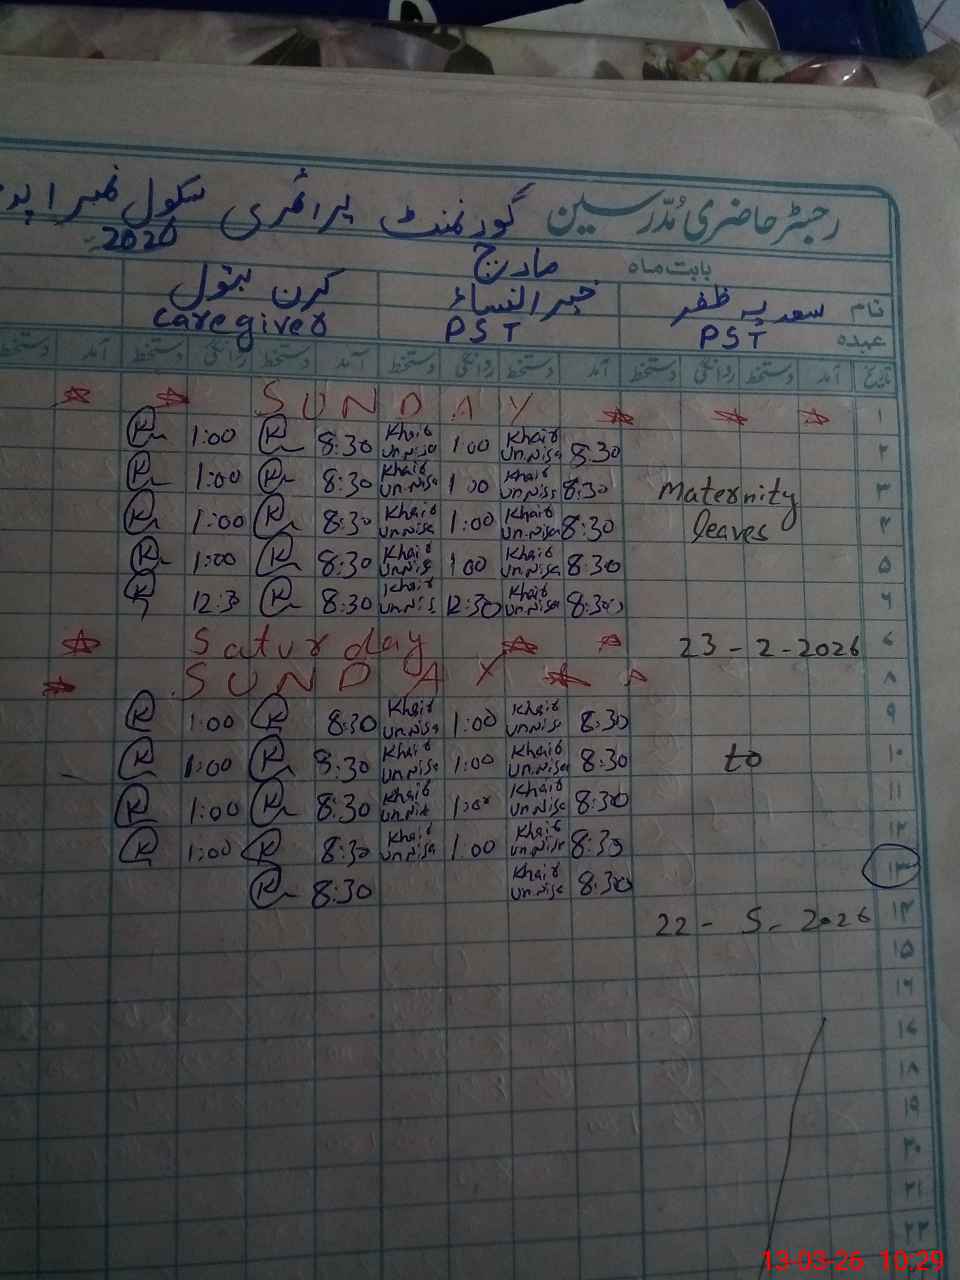 رجسٹر حاضری مُدّرسین گورنمنٹ پرائمری سکول نمبر ۱
2020
بابت ماہ مارچ
نام سعدیہ ظفر خیر النساء کرن بتول
عہدہ PST PST Caregiver
تاریخ آمد دستخط روانگی دستخط آمد دستخط روانگی دستخط آمد دستخط روانگی دستخط آمد دستخط
۱ SUNDAY
۲ 8:30 Khair un.nisa 1:00 Khair un.nisa 8:30 K 1:00 K
۳ Maternity 8:30 Khair un.nisa 1:00 Khair un.nisa 8:30 K 1:00 K
۴ leaves 8:30 Khair un.nisa 1:00 Khair un.nisa 8:30 K 1:00 K
۵ 8:30 Khair un.nisa 1:00 Khair un.nisa 8:30 K 1:00 K
۶ 8:30 Khair un.nisa 12:30 Khair un.nisa 8:30 K 12:30 K
23-2-2026 Saturday
۸ SUNDAY
۹ 8:30 Khair un.nisa 1:00 Khair un.nisa 8:30 K 1:00 K
۱۰ to 8:30 Khair un.nisa 1:00 Khair un.nisa 8:30 K 1:00 K
۱۱ 8:30 Khair un.nisa 1:00 Khair un.nisa 8:30 K 1:00 K
۱۲ 8:30 Khair un.nisa 1:00 Khair un.nisa 8:30 K 1:00 K
۱۳ 8:30 Khair un.nisa 8:30 K
۱۴ 22-5-2026
۱۵
۱۸
۱۹
۲۰
۲۱
۲۲
13-03-26 10:29